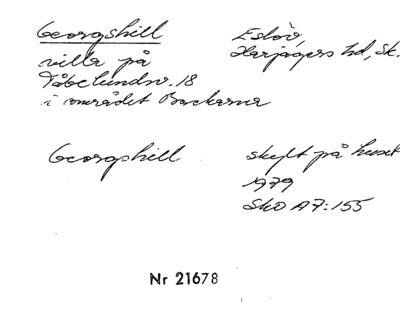 Georgshill
Eslöv,
villa på
Harjagers hd, Sk.
Tåbelundsv. 18
i området Backarna
Georgshill
skylt på huset
1979
SkO A7:155
Nr 21678